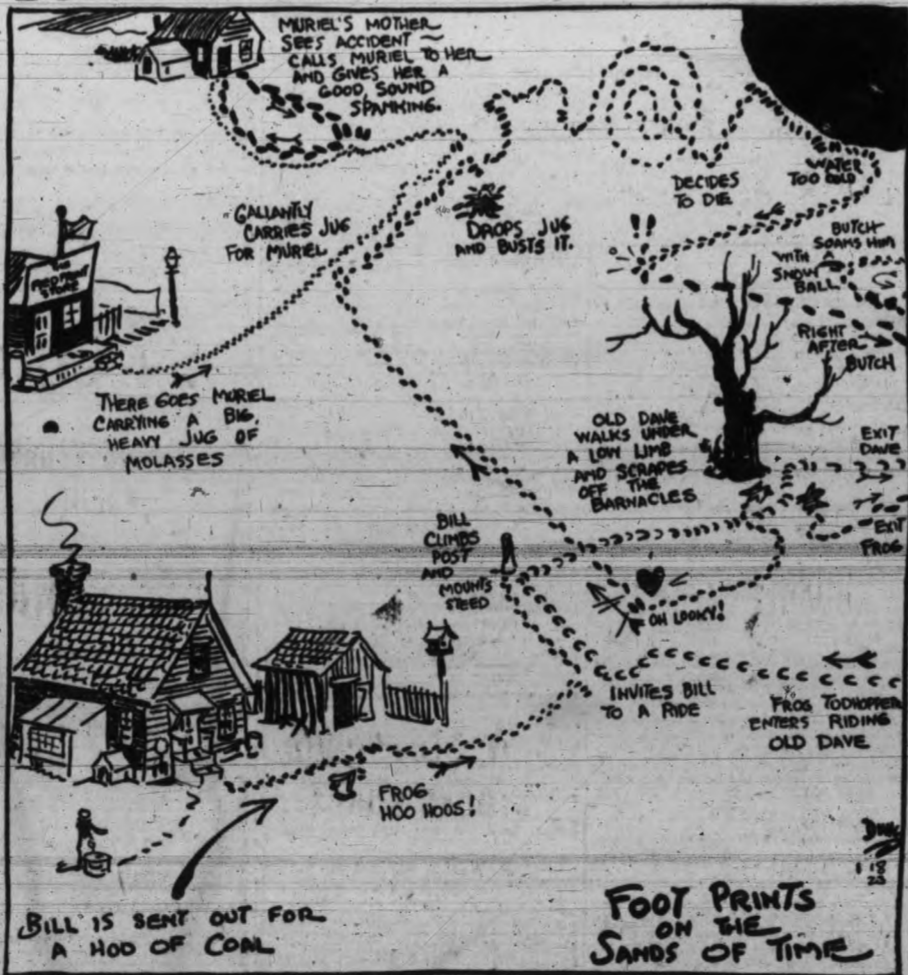 MURIEL'S MOTHER
SEES ACCIDENT ~
CALLS MURIEL TO HER
AND GIVES HER A
GOOD, SOUND
SPANKING.
GALLANTLY
CARRIES JUG
FOR MURIEL
DROPS JUG
AND BUSTS IT.
DECIDES
TO DIE
WATER
TOO COLD
!!
BUTCH
SOAKS HIM
WITH A
SNOW
BALL
RIGHT
AFTER
BUTCH
STORE
THERE GOES MURIEL
CARRYING A BIG,
HEAVY JUG OF
MOLASSES
OLD DAVE
WALKS UNDER
A LOW LIMB
AND SCRAPES
OFF THE
BARNACLES
EXIT
DAVE
EXIT
FROG
BILL
CLIMBS
POST
AND
MOUNTS
STEED
OH LOOKY!
INVITES BILL
TO A RIDE
FROG TODHOPPER
ENTERS RIDING
OLD DAVE
FROG
HOO HOOS!
BILL IS SENT OUT FOR
A HOD OF COAL
FOOT PRINTS
ON THE
SANDS OF TIME